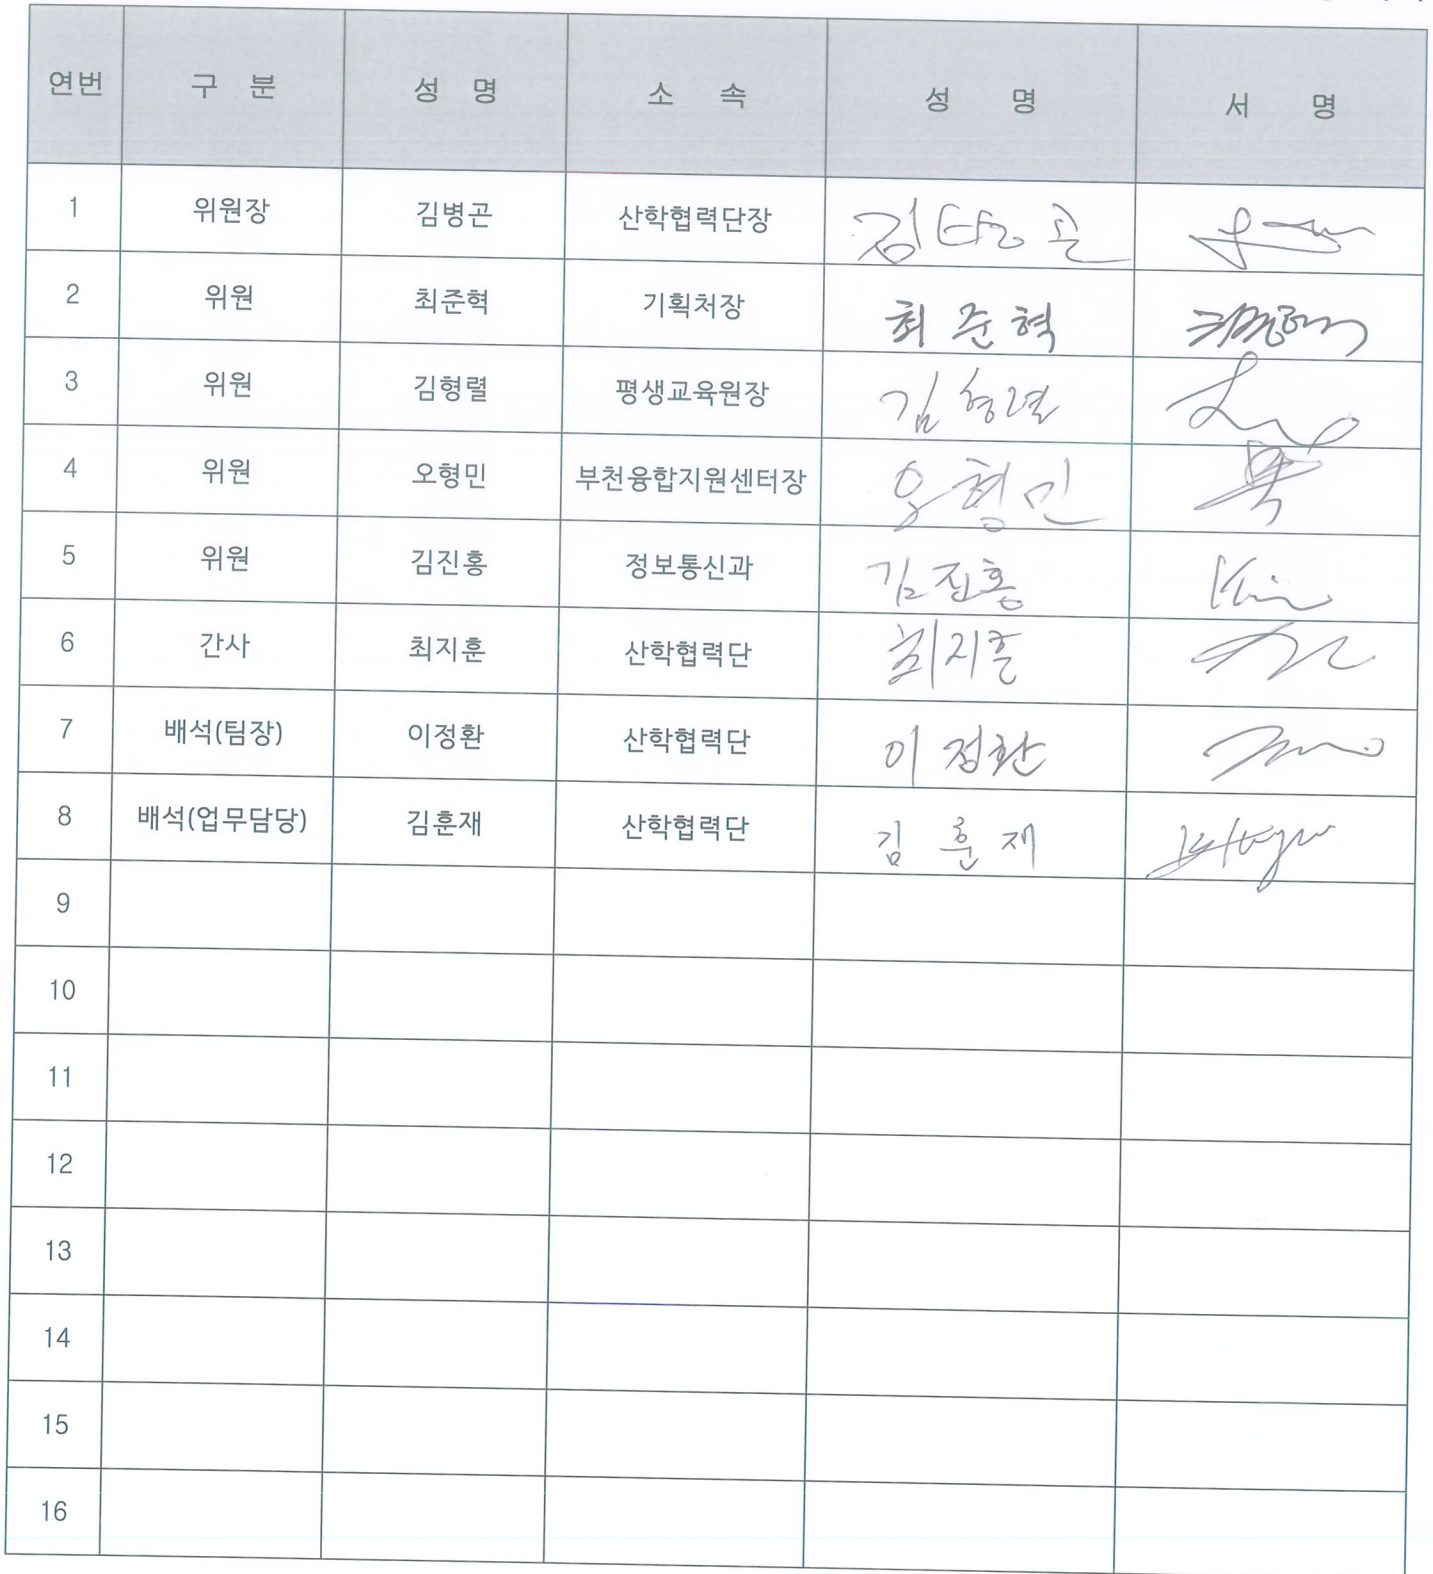 연번 구 분 성 명 소 속 성 명 서 명
1 위원장 김병곤 산학협력단장 김병곤
2 위원 최준혁 기획처장 최준혁
3 위원 김형렬 평생교육원장 김형렬
4 위원 오형민 부천융합지원센터장 오형민
5 위원 김진홍 정보통신과 김진홍 Kim
6 간사 최지훈 산학협력단 최지훈
7 배석(팀장) 이정환 산학협력단 이정환
8 배석(업무담당) 김훈재 산학협력단 김훈재
9
10
11
12
13
14
15
16